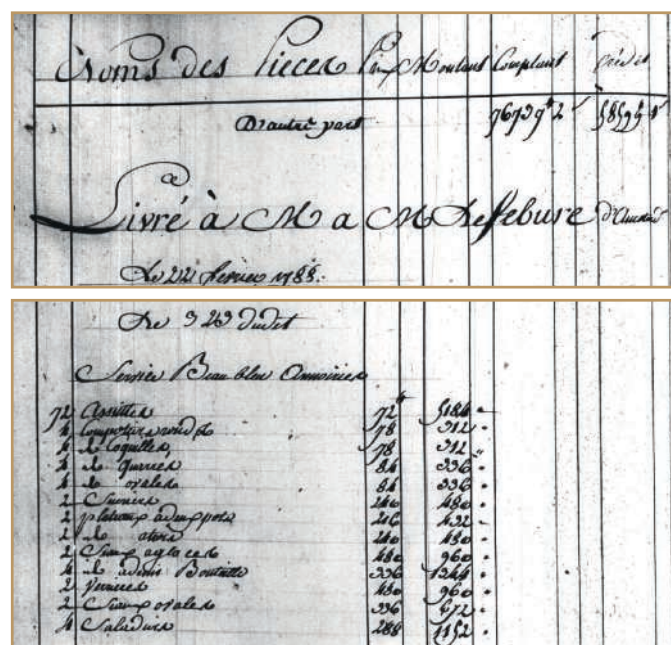 Noms des Pieces Prix Montant Comptant Crédit
D'autre part
Livré à M a M Lefebure
Le 22 fevrier 1788.
23 dudit
Service Beau bleu Armoiries
72 Assiettes 72 5184
4 Compotiers ronds 78 312
4 de Coquilles 78 312
4 de quarrés 84 336
4 de ovales 84 336
2 Sucriers 240 480
2 plateaux a deux pots 216 432
2 de atrois 240 480
2 Seaux a glaces 480 960
4 de a demi Bouteille 336 1344
2 Verieres 480 960
2 Seaux ovales 336 672
4 Saladiers 288 1152